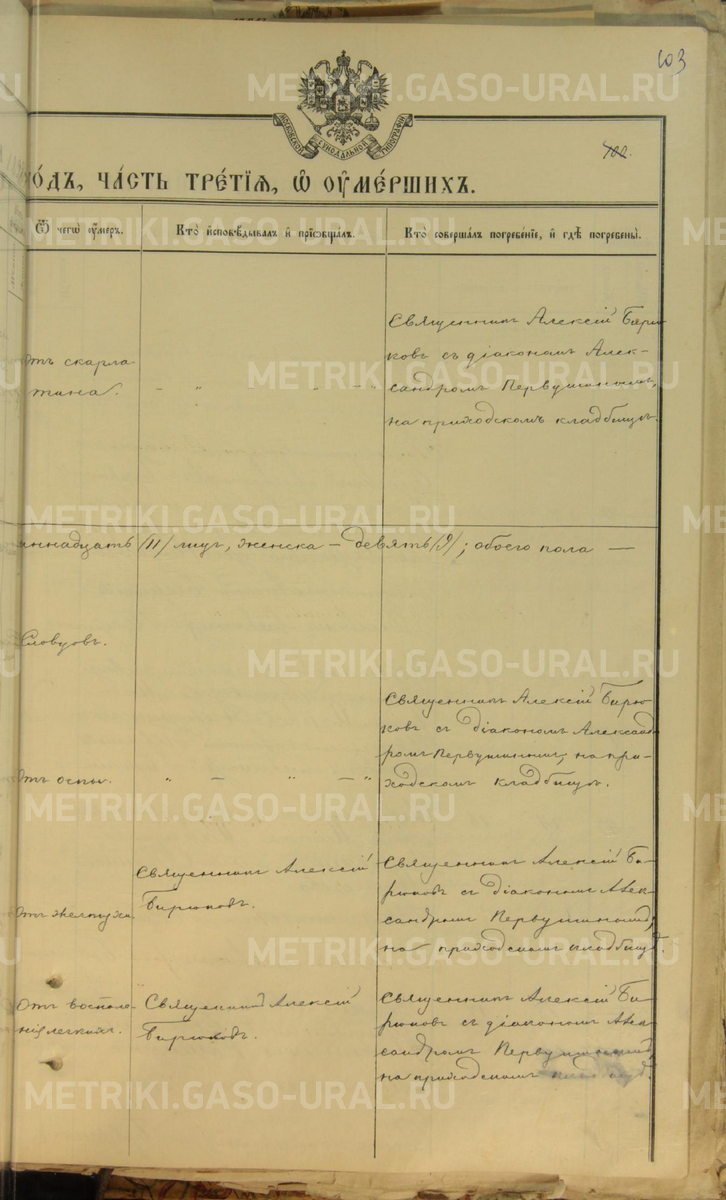 103
METRIKI.GASO-URAL.RU
МОСКОВСКОЙ СѴНОДАЛЬНОЙ ТИПОГРАФІИ
122.
го́дъ, ча́сть тре́тїѧ, ѡ҆ оу҆ме́ршихъ.
Ѿ чегѡ̀ оу҆́меръ.
Кто̀ и҆сповѣ́дывалъ и҆ прїѻбща́лъ.
Кто̀ соверша́лъ погребе́нїе, и҆ гдѣ̀ погребены̀.
Отъ скарла-
тина.
- „ „ - „
Священникъ Алексій Бирю-
ковъ съ діакономъ Алек-
сандромъ Первушинымъ,
на приходскомъ кладбищѣ.
METRIKI.GASO-URAL.RU
иннадцать /11/ лицъ, женска - девять /9/; обоего пола —
Словцовъ.
METRIKI.GASO-URAL.RU
Отъ оспы.
„ - „ - „
Священникъ Алексій Бирю-
ковъ съ діакономъ Александ
ромъ Первушинымъ, на при-
ходскомъ кладбищѣ.
METRIKI.GASO-URAL.RU
Священникъ Алексій
Бирюковъ.
Священникъ Алексій Би-
рюковъ съ діакономъ Алек-
сандромъ Первушинымъ,
на приходскомъ кладбищѣ.
METRIKI.GASO-URAL.RU
Отъ воспале-
нія легкихъ.
Священникъ Алексій
Бирюковъ.
Священникъ Алексій Би-
рюковъ съ діакономъ Алек-
сандромъ Первушинымъ,
на приходскомъ кладбищѣ.
METRIKI.GASO-URAL.RU